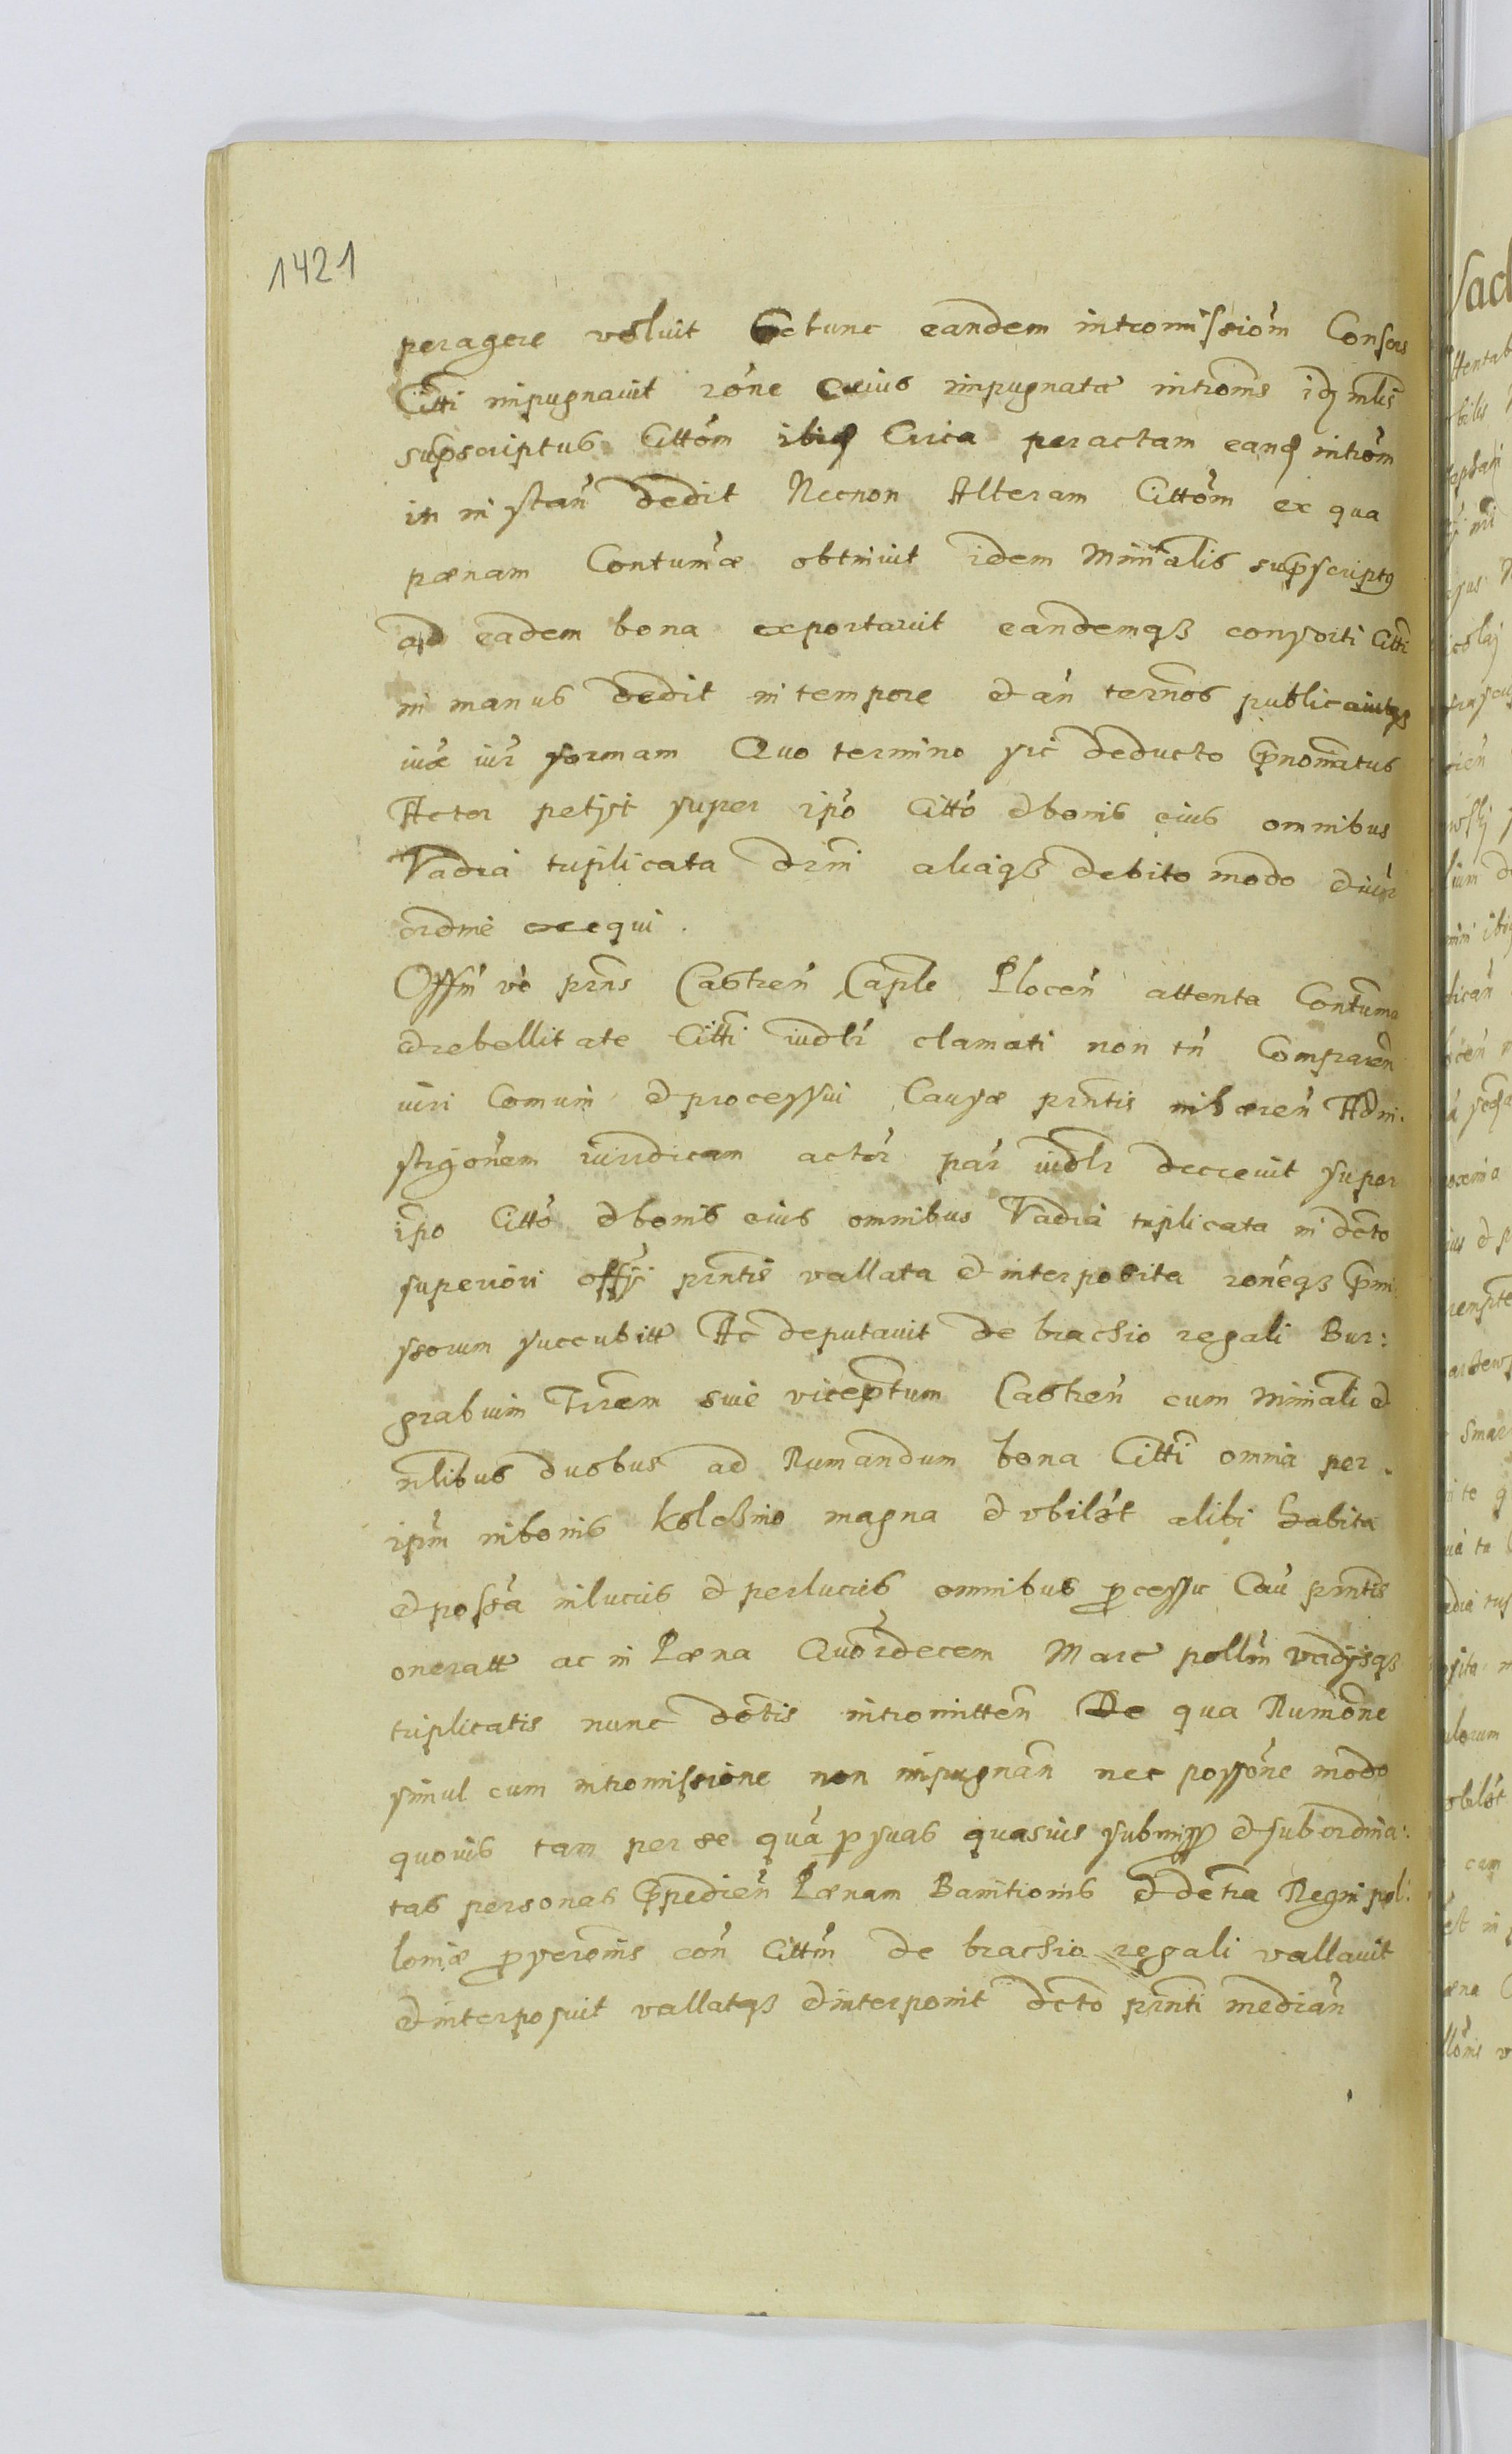 1421
peragere voluit Et tunc eandem intromissiom Consors
Citti impugnavit rone cuius impugnatæ introms idq mlis
supscriptus Cittom ibiq Circa peractam eanq introm
in instan dedit Necnon Alteram Cittom ex qua
pœnam Contumæ obtinuit idem Minralis supscriptus
ad eadem bona exportavit eandemqß consorti Citti
in manus dedit in tempore et an ternos publicavitqß
iuxæ iur formam Quo termino sic deducto Prnomitus
Actor petyit super ipo Citto et bonis eius omnibus
Vadia triplicata decrni aliaqß debito modo et iur
ordine exequi.
Offm vo prns Castren Caple Plocen attenta Contuma
et rebellitate Citti iudlr clamati non tn Comparen
iuri Comuni et processui Causæ prntis inhæren Admi.
strgonem iuridicam actor par iudlr decrevit super
ipo Citto et bonis eius omnibus Vadia triplicata in dcto
superiori offiji prntis vallata et interposita roneqß Prmi
ssorum succubitt Ac deputavit de brachio regali Bur:
grabium Trrem sive viceptum Castren cum Minrali et
nlibus duobus ad Rumandum bona Citti omnia per.
ipm in bonis Koleßino magna et ubilbt alibi habita
et possa in lucris et per lucris omnibus pcessu Cau prntis
oneratt ac in Pœna Quordecem Marc pollm Vadijsqß
triplicatis nunc dctis intromitten De qua Rumone
simul cum intromissione non impugnan nec possone modo
quovis tam per se qua p suas quasvis submiss et subordina:
tas personas Prpedien Pœnam Banitionis et dcra Regni pol:
loniæ p verons con Cittm de brachio regali vallavit
et interposuit vallatqß et interponit dcto prnti median